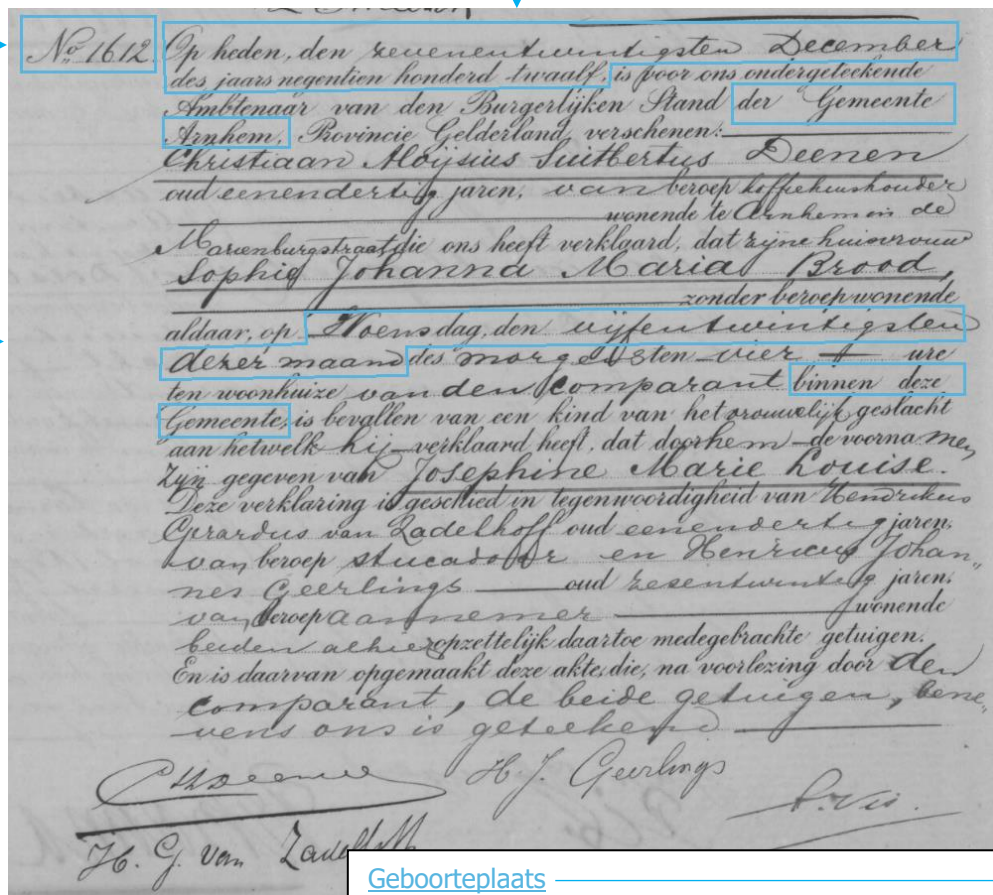 No. 1612. Op heden, den zevenentwintigsten December
des jaars negentien honderd twaalf, is voor ons ondergeteekende
Ambtenaar van den Burgerlijken Stand der Gemeente
Arnhem, Provincie Gelderland, verschenen:
Christiaan Aloijsius Suitbertus Deenen
oud eenendertig jaren, van beroep koffiehuishouder
wonende te Arnhem in de
Marienburgstraat die ons heeft verklaard, dat zijne huisvrouw
Sophia Johanna Maria Brood,
zonder beroep wonende
aldaar, op Woensdag, den vijfentwintigsten
dezer maand des morgens ten vier ure
ten woonhuize van den comparant binnen deze
Gemeente, is bevallen van een kind van het vrouwelijk geslacht
aan hetwelk hij verklaard heeft, dat door hem de voornamen
zijn gegeven van Josephine Marie Louise.
Deze verklaring is geschied in tegenwoordigheid van Hendrikus
Gerardus van Zadelhoff oud eenendertig jaren,
van beroep stucadoor en Henricus Johan„
nes Geerlings oud zesentwintig jaren,
van beroep aannemer wonende
beiden alhier opzettelijk daartoe medegebrachte getuigen.
En is daarvan opgemaakt deze akte, die, na voorlezing door den
comparant, de beide getuigen, bene„
vens ons is geteekend
H. J. Geerlings
H. G. van Zadelhoff
Geboorteplaats